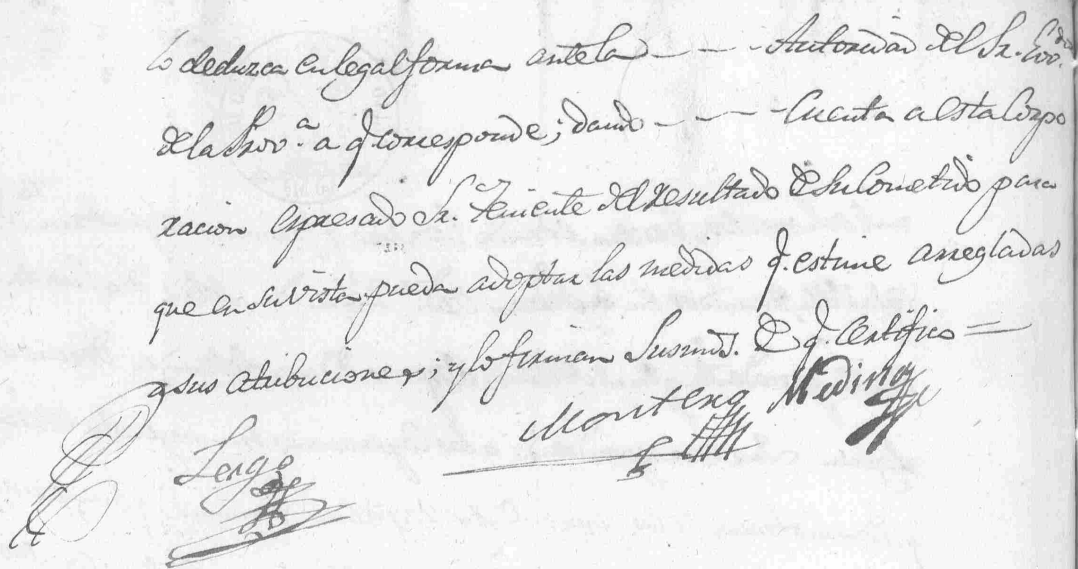 lo deduzca en legal forma ante la — — — Autoridad del Sr. Gov.dor
de la Prov.a a q. corresponde; dando — — — Cuenta a esta Corpo
racion espresado Sr. Teniente del resultado de su Cometido para
que en su vista pueda adoptar las medidas q. estime arregladas
a sus atribuciones; y lo firman Susmds. de q. Certifico =
Montero Medina